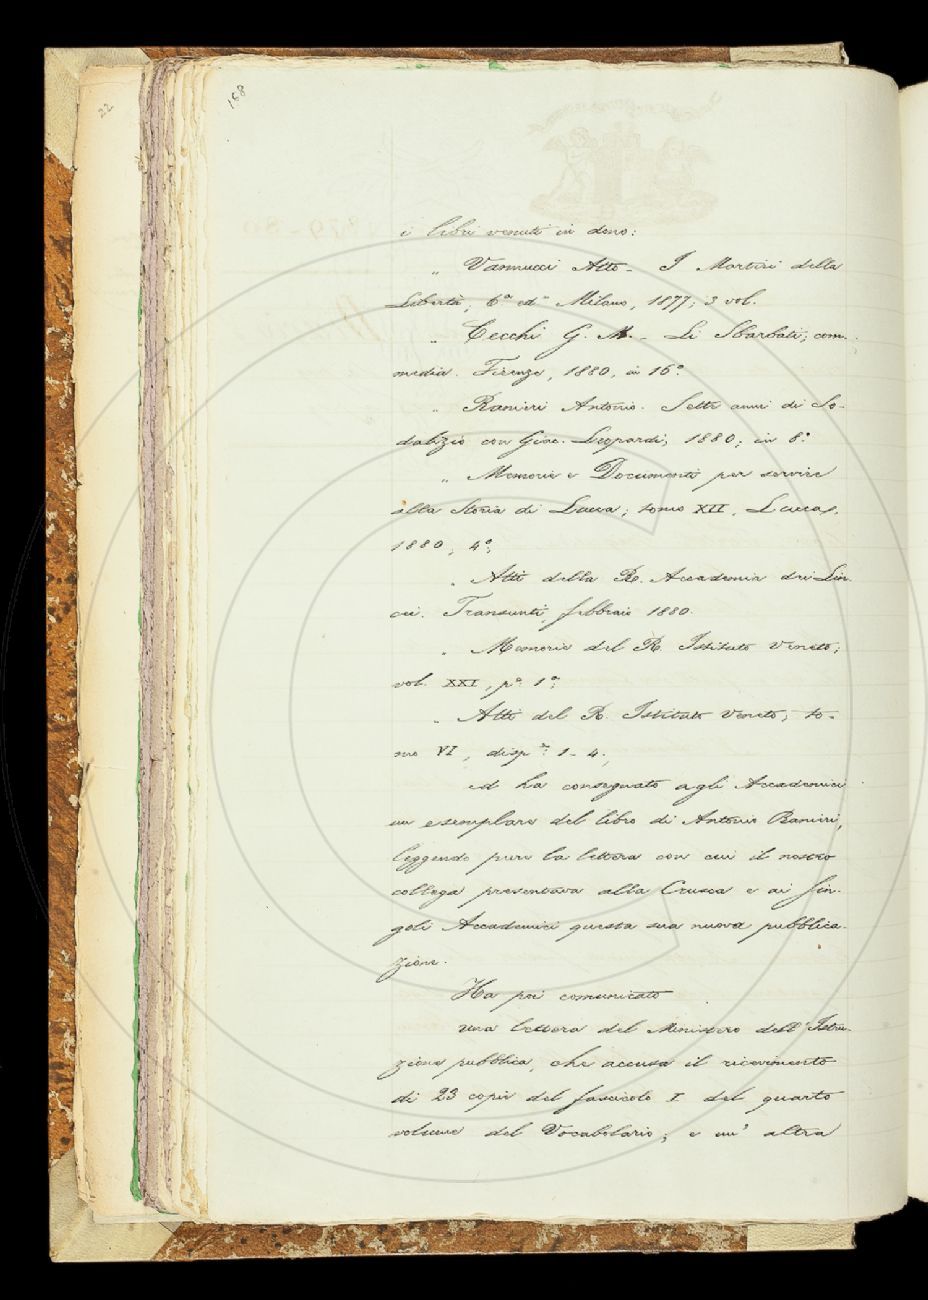 22
158
i libri venuti in dono:
„ Vannucci Atto - I Martiri della
Libertà; 6ª edⁿ Milano, 1877; 3 vol.
„ Cecchi G. M. - Li Sbarbati; com-
media. Firenze, 1880, in 16°.
„ Ranieri Antonio. Sette anni di So-
dalizio con Giac. Leopardi; 1880; in 8°
„ Memorie e Documenti per servire
alla Storia di Lucca; tomo XII, Lucca,
1880, 4°;
„ Atti della R. Accademia dei Lin-
cei. Transunti, febbraio 1880.
„ Memorie del R. Istituto Veneto;
vol. XXI, pᵉ 1ª;
„ Atti del R. Istituto Veneto; to-
mo VI, dispᵉ 1-4;
ed ha consegnato agli Accademici
un esemplare del libro di Antonio Ranieri,
leggendo pure la lettera con cui il nostro
collega presentava alla Crusca e ai sin-
goli Accademici questa sua nuova pubblica-
zione.
Ha poi comunicato
una lettera del Ministero dell'Istru-
zione pubblica, che accusa il ricevimento
di 23 copie del fascicolo I del quarto
volume del Vocabolario; e un' altra